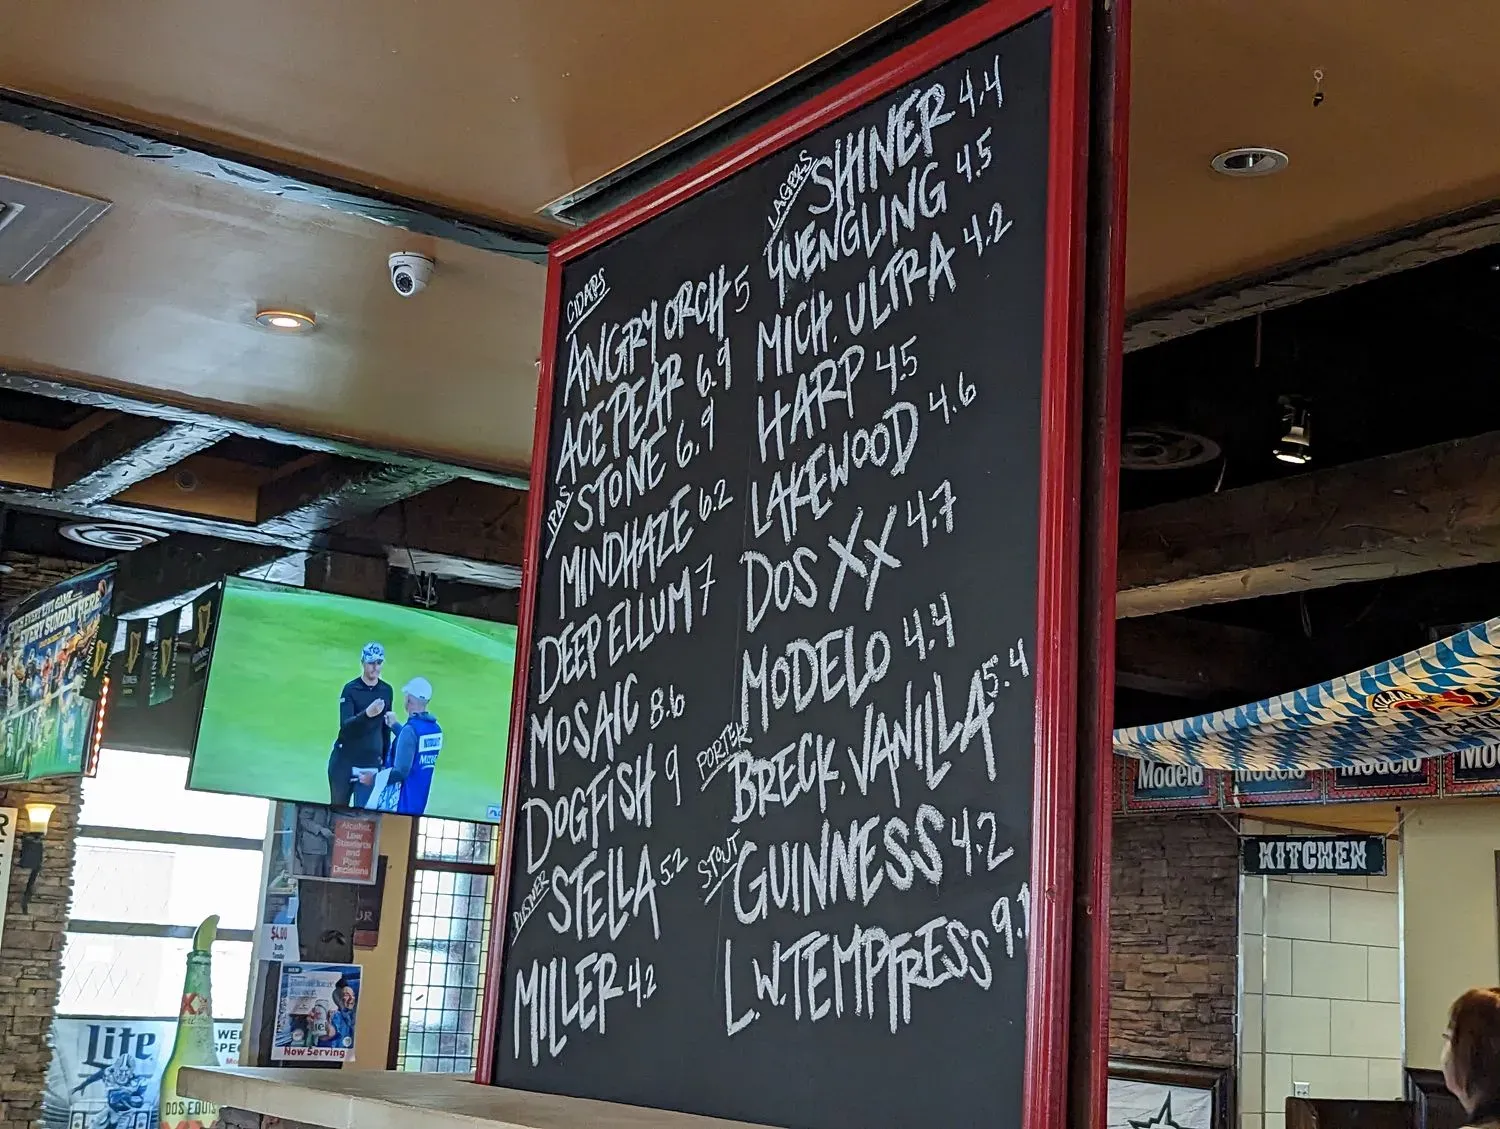 CIDARS
ANGRY ORCH 5
ACE PEAR 6.9
IPAS
STONE 6.9
MINDHAZE 6.2
DEEP ELLUM 7
MOSAIC 8.6
DOGFISH 9
PILSNER
STELLA 5.2
MILLER 4.2
LAGERS
SHINER 4.4
YUENGLING 4.5
MICH. ULTRA 4.2
HARP 4.5
LAKEWOOD 4.6
DOS XX 4.7
MODELO 4.4
PORTER
BRECK. VANILLA 5.4
STOUT
GUINNESS 4.2
L.W. TEMPTRESS 9.1
EVERY SUNDAY HERE
GUINNESS
Alcohol,
Low
Standards
and
Poor
Decisions
$4.00
Now Serving
Lite
DOS EQUIS
Modelo
Modelo
Modelo
KITCHEN